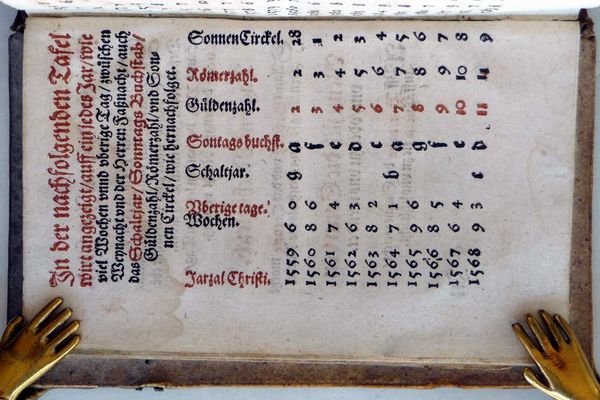 In der nachfolgenden Tafel
wirt angezeigt/auff ein jedes Jar/wie
viel Wochen vnnd vberige Tag/zwüschen
Weynacht vnd der Herren Faßnacht/auch
das Schaltjar/Sonntags Buchstab/
Güldenzahl/Römerzahl/vnd Son-
nen Circkel/wie hernachfolget.
Jarzal Christi.
Wochen.
Vberige tage.
Schaltjar.
Sontags buchst.
Güldenzahl.
Römerzahl.
SonnenCirckel.
1559 6 0 g a 2 2 28
1560 8 6 f 3 3 1
1561 7 4 e 4 4 2
1562 6 3 d 5 5 3
1563 8 2 c 6 6 4
1564 7 1 b a 7 7 5
1565 9 6 g 8 8 6
1566 8 5 f 9 9 7
1567 6 4 e 10 10 8
1568 9 3 d c 11 11 9